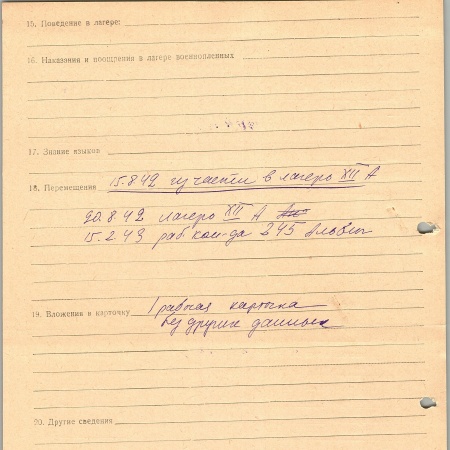 15. Поведение в лагере:
16. Наказания и поощрения в лагере военнопленных
17. Знание языков
18. Перемещения 15.8.42 из части в лагерь XII А
20.8.42 лагерь XII А
15.2.43 раб. ком-да 245
19. Вложения в карточку 1 рабочая карточка
без других данных
20. Другие сведения